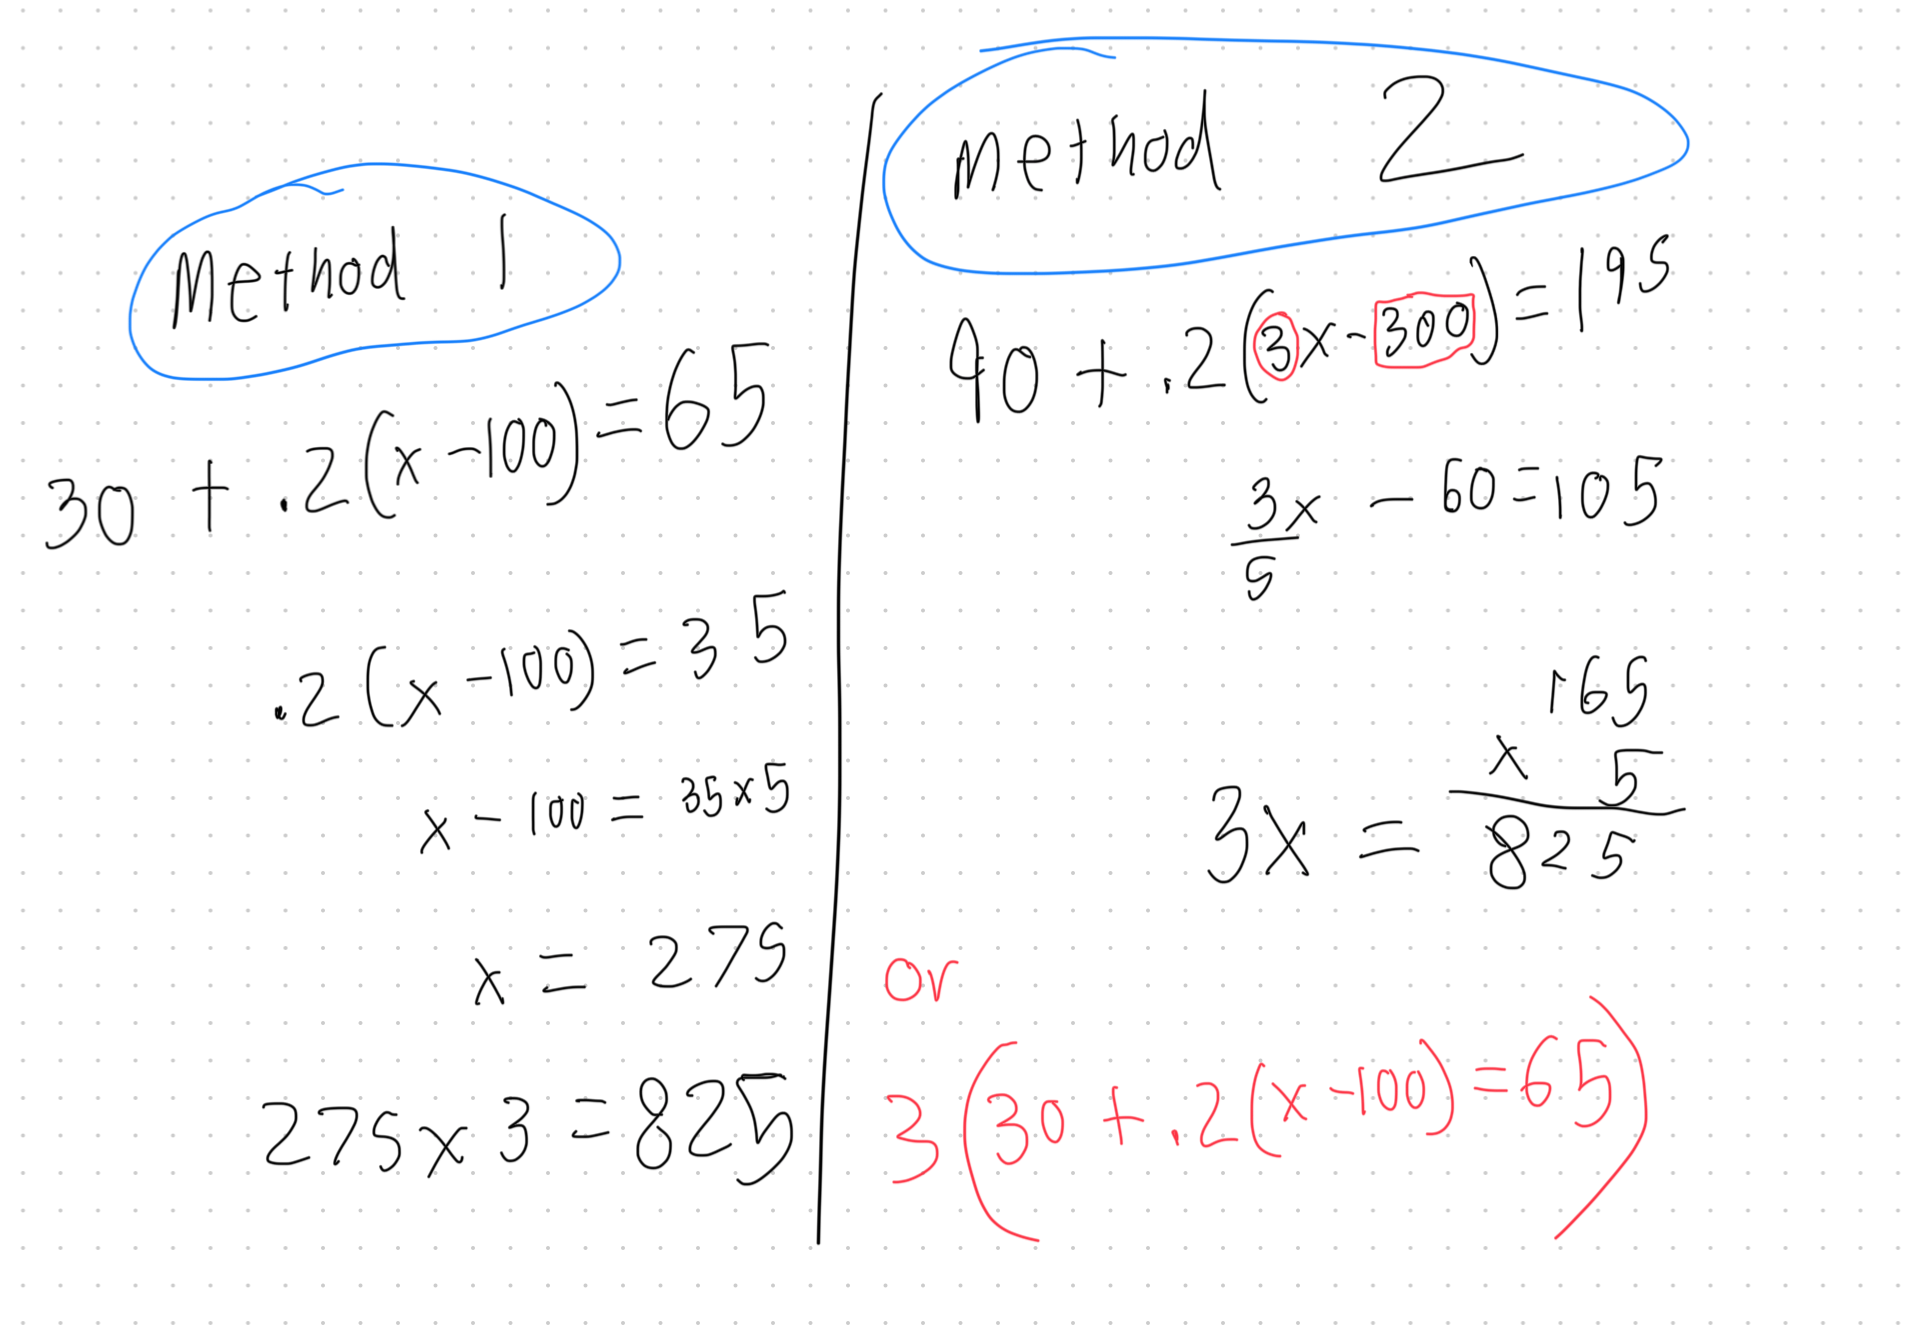 Method 1
30 + .2(x - 100) = 65
.2(x - 100) = 35
x - 100 = 35 x 5
x = 275
275 x 3 = 825
Method 2
90 + .2(3x - 300) = 195
3x/5 - 60 = 105
165
x 5
3x = 825
or
3(30 + .2(x - 100) = 65)